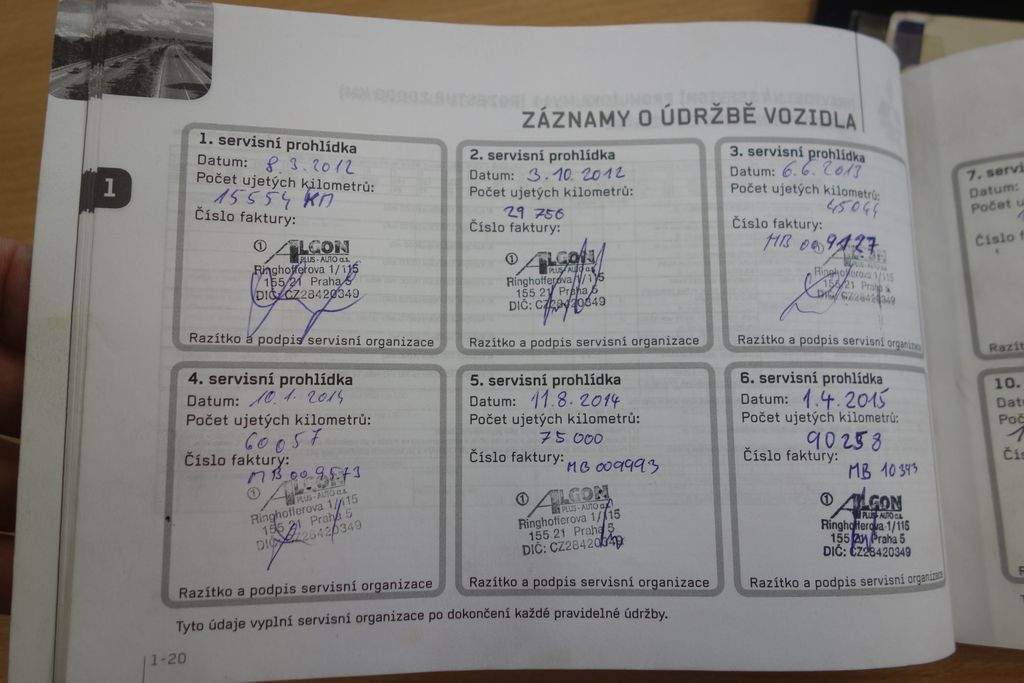 ZÁZNAMY O ÚDRŽBĚ VOZIDLA
1
1. servisní prohlídka
Datum: 8.3.2012
Počet ujetých kilometrů:
15554 KM
Číslo faktury:
1 ALGON
PLUS - AUTO a.s.
Ringhofferova 1/115
155 21 Praha 5
DIČ: CZ28420349
Razítko a podpis servisní organizace
2. servisní prohlídka
Datum: 3.10.2012
Počet ujetých kilometrů:
29 756
Číslo faktury:
1 ALGON
PLUS - AUTO a.s.
Ringhofferova 1/115
155 21 Praha 5
DIČ: CZ28420349
Razítko a podpis servisní organizace
3. servisní prohlídka
Datum: 6.6.2013
Počet ujetých kilometrů:
45044
Číslo faktury:
MB 009127
Ringhofferova 1/115
155 21 Praha 5
DIČ: CZ28420349
Razítko a podpis servisní organizace
4. servisní prohlídka
Datum: 10.1.2014
Počet ujetých kilometrů:
60057
Číslo faktury:
MB 009573
1 ALGON
PLUS - AUTO a.s.
Ringhofferova 1/115
155 21 Praha 5
DIČ: CZ28420349
Razítko a podpis servisní organizace
5. servisní prohlídka
Datum: 11.8.2014
Počet ujetých kilometrů:
75 000
Číslo faktury:
MB 009993
1 ALGON
PLUS - AUTO a.s.
Ringhofferova 1/115
155 21 Praha 5
DIČ: CZ28420349
Razítko a podpis servisní organizace
6. servisní prohlídka
Datum: 1.4.2015
Počet ujetých kilometrů:
90258
Číslo faktury:
MB 10343
1 ALGON
PLUS - AUTO a.s.
Ringhofferova 1/115
155 21 Praha 5
DIČ: CZ28420349
Razítko a podpis servisní organizace
Tyto údaje vyplní servisní organizace po dokončení každé pravidelné údržby.
1-20
7. servi
Datum:
Počet u
Číslo f
Razít
10.
Dat
Poč
Čís